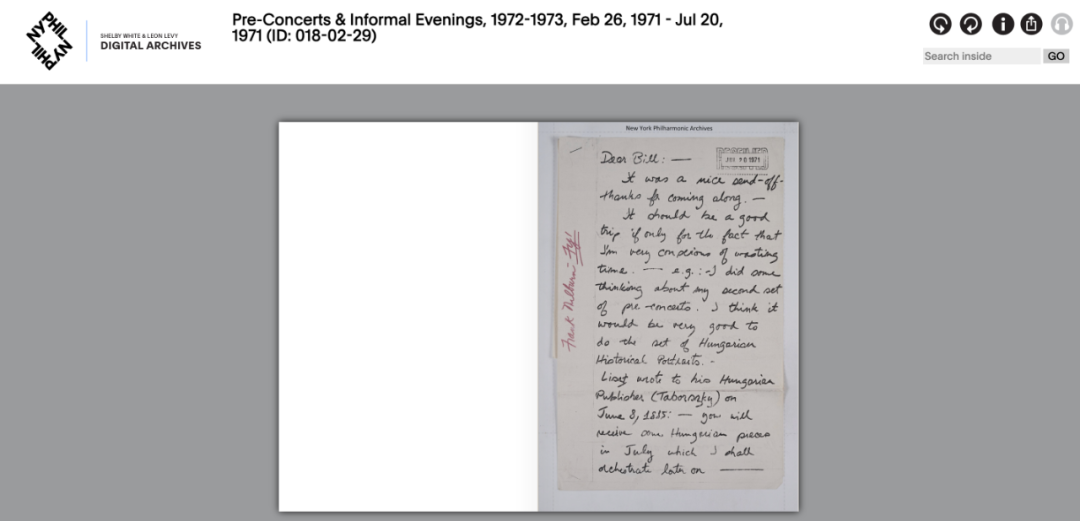 NY PHIL
NY PHIL
SHELBY WHITE & LEON LEVY
DIGITAL ARCHIVES
Pre-Concerts & Informal Evenings, 1972-1973, Feb 26, 1971 - Jul 20,
1971 (ID: 018-02-29)
Search inside
GO
New York Philharmonic Archives
Dear Bill: —
1971
It was a nice send-off-
thanks for coming along. —
It should be a good
trip if only for the fact that
I'm very conscious of wasting
time. — e.g.: - I did some
thinking about my second set
of pre-concerts. I think it
would be very good to
do the set of Hungarian
Historical Portraits. -
Liszt wrote to his Hungarian
Publisher (Taborszky) on
June 8, 1885: — you will
receive some Hungarian pieces
in July which I shall
orchestrate later on —
Frank Milburn